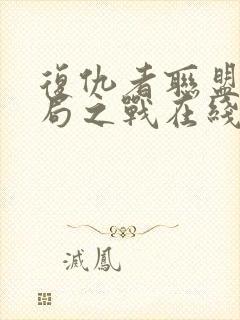 復仇者聯盟
局之戰在綫
滅鳳